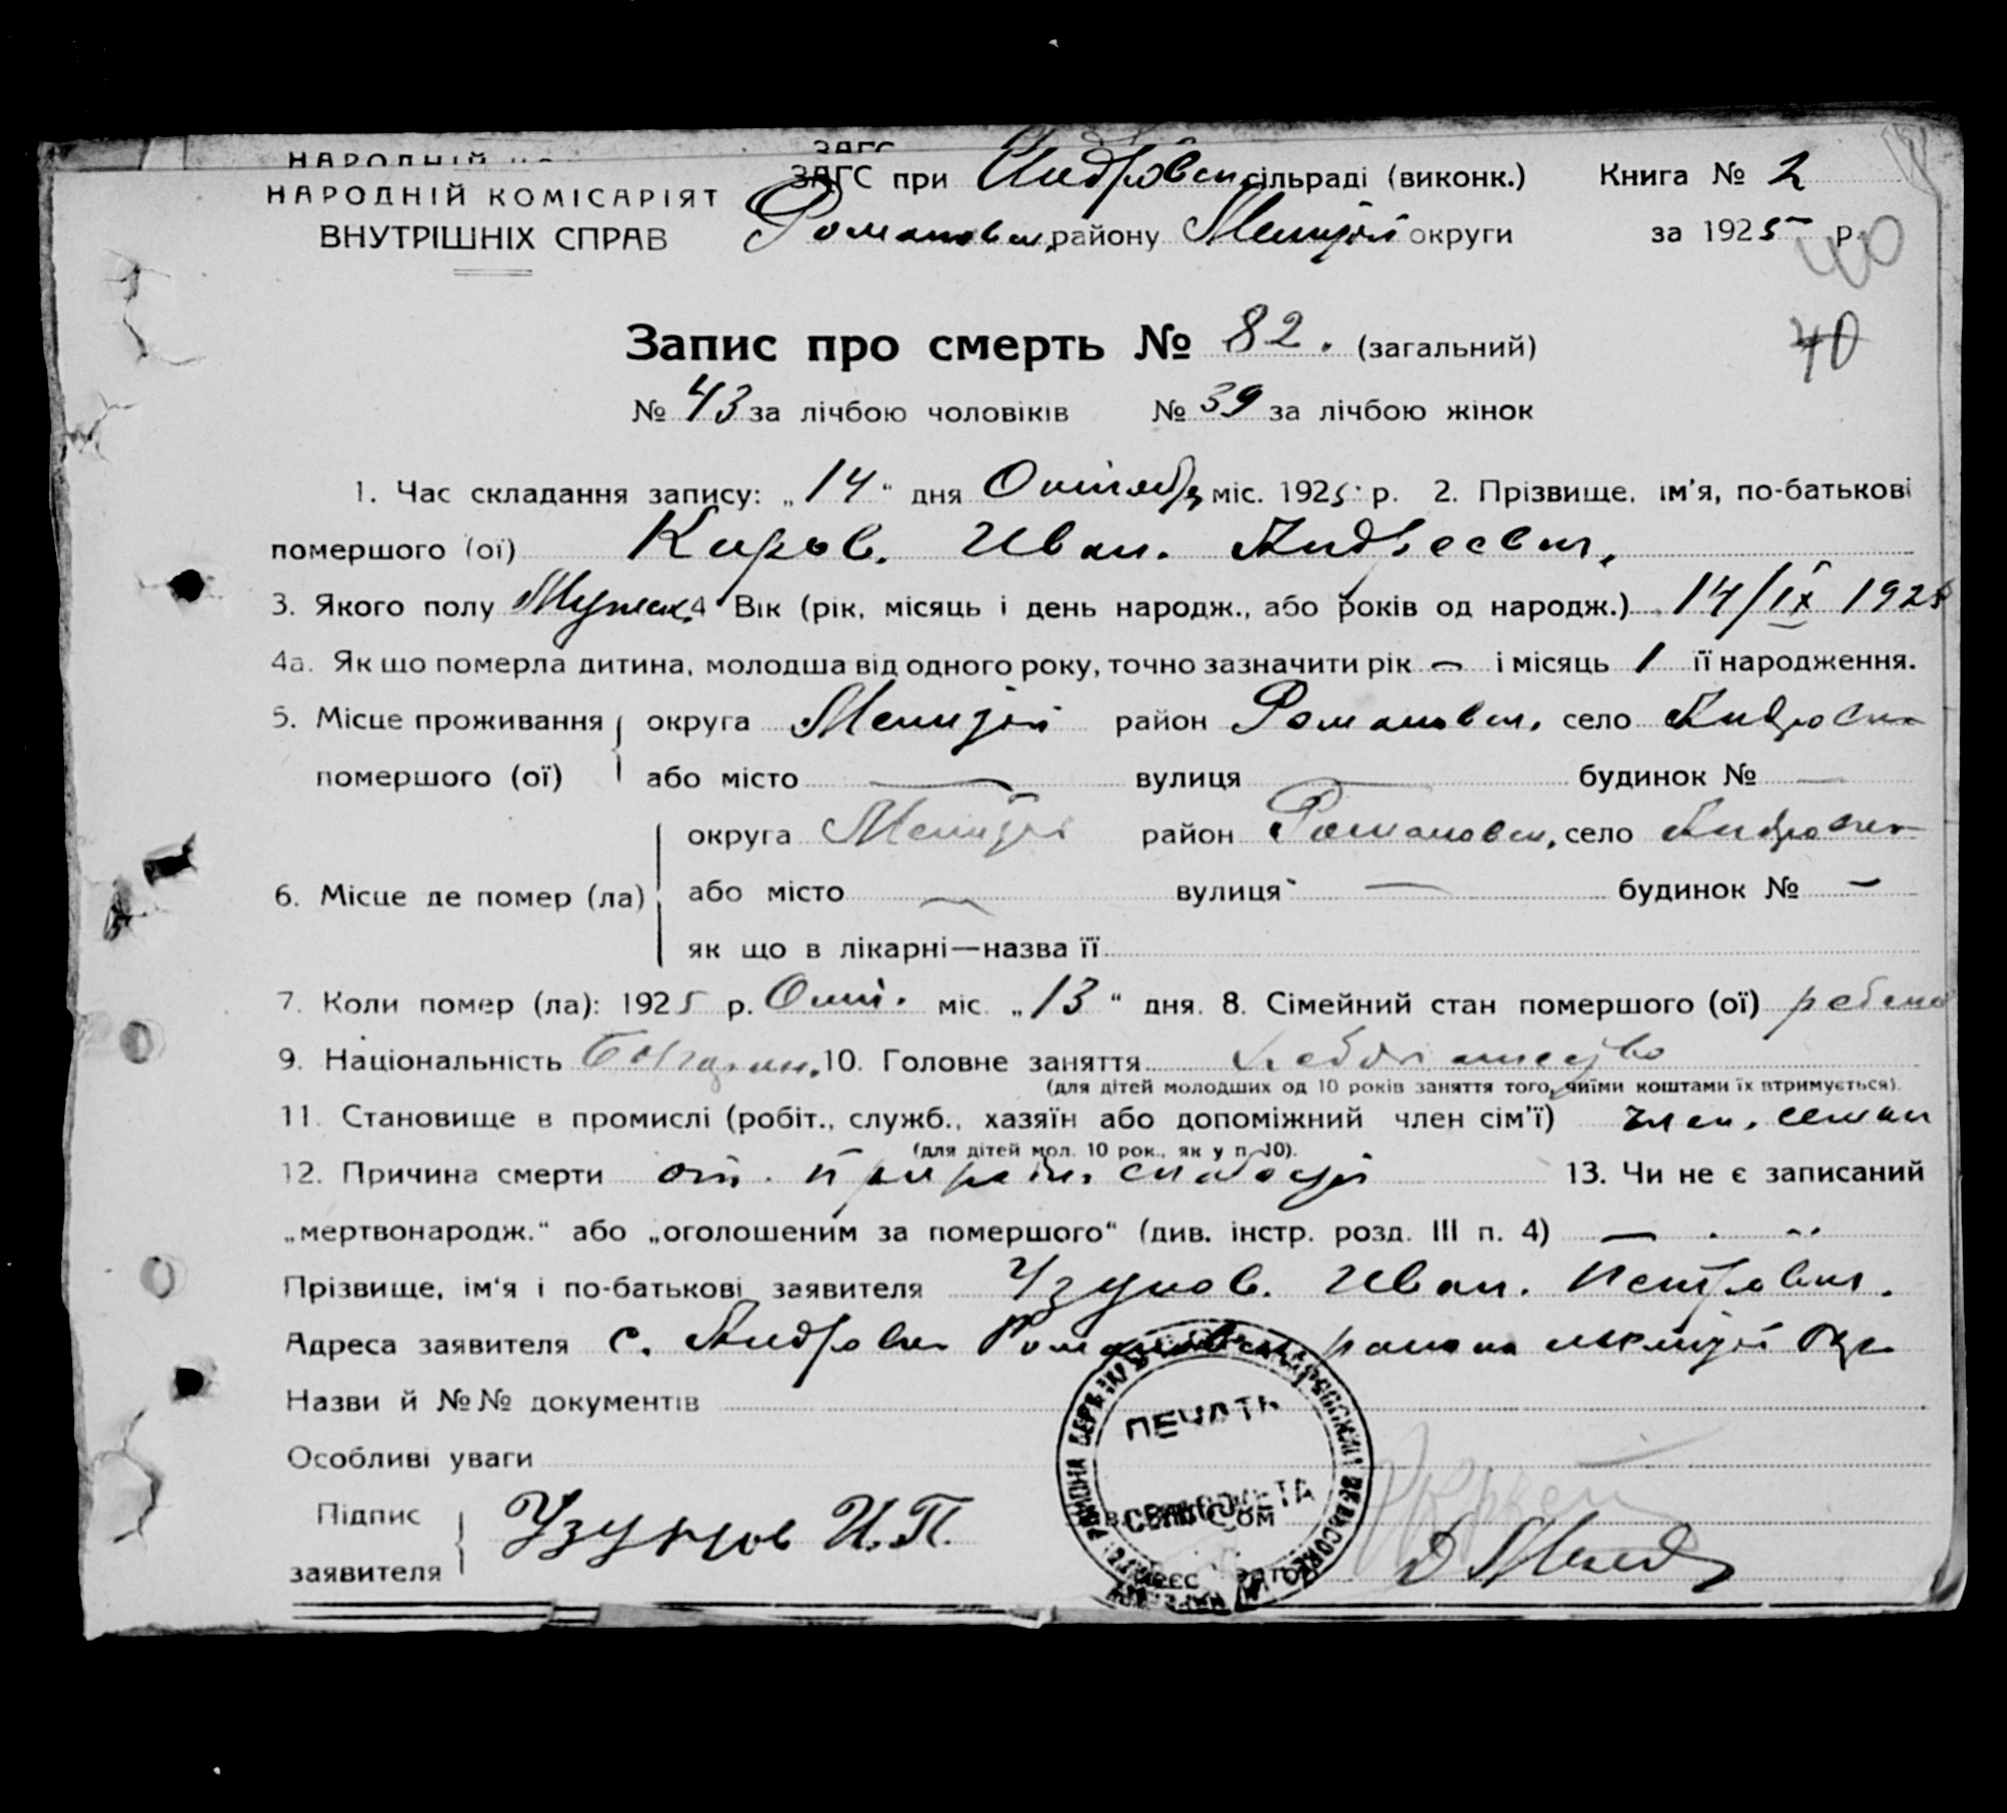 НАРОДНІЙ КОМІСАРІЯТ
ВНУТРІШНІХ СПРАВ
ЗАГС при Андровск. сільраді (виконк.) Книга № 2
Романовск. району Мелитой округи за 1925 р.
40
Запис про смерть № 82. (загальний)
40
№ 43 за лічбою чоловіків № 39 за лічбою жінок
1. Час складання запису: „14“ дня Октября міс. 1925 р. 2. Прізвище, ім'я, по-батькові
помершого (ої) Киров. Иван. Андреевич.
3. Якого полу Мужск. 4 Вік (рік, місяць і день народж., або років од народж.) 14/IX 1925
4а. Як що померла дитина, молодша від одного року, точно зазначити рік — і місяць 1 її народження.
5. Місце проживання округа район Романовск. село Андровка
помершого (ої) або місто — вулиця — будинок № —
округа район Романовск. село Андровка
6. Місце де помер (ла) або місто — вулиця — будинок № —
як що в лікарні—назва її
7. Коли помер (ла): 1925 р. Окт. міс. „13“ дня. 8. Сімейний стан помершого (ої) ребенок
9. Національність Болгарин. 10. Головне заняття хлебопашество
(для дітей молодших од 10 років заняття того, чиїми коштами їх втримується).
11. Становище в промислі (робіт., служб., хазяїн або допоміжний член сім'ї) член. семьи
(для дітей мол. 10 рок., як у п. 10).
12. Причина смерти от. слабости 13. Чи не є записаний
„мертвонародж.“ або „оголошеним за помершого“ (див. інстр. розд. III п. 4) —
Прізвище, ім'я і по-батькові заявителя Узунов. Иван. Петрович.
Адреса заявителя с. Андровка Романовск. района Окр
Назви й №№ документів
Особливі уваги
ПЕЧАТЬ
СЕЛЬСОВЕТА
Підпис
заявителя Узунов И.П.